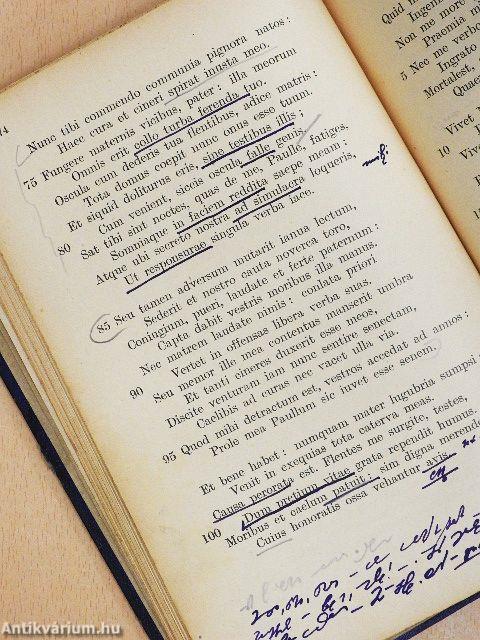 74
Nunc tibi commendo communia pignora natos:
Haec cura et cineri spirat inusta meo.
75 Fungere maternis vicibus, pater: illa meorum
Omnis erit collo turba ferenda tuo.
Oscula cum dederis tua flentibus, adice matris:
Tota domus coepit nunc onus esse tuum.
Et siquid doliturus eris, sine testibus illis;
80 Cum venient, siccis oscula falle genis!
Sat tibi sint noctes, quas de me, Paulle, fatiges,
Somniaque in faciem reddita saepe meam:
Atque ubi secreto nostra ad simulacra loqueris,
Ut responsurae singula verba iace.
85 Seu tamen adversum mutarit ianua lectum,
Sederit et nostro cauta noverca toro,
Coniugium, pueri, laudate et ferte paternum:
Capta dabit vestris moribus illa manus.
Nec matrem laudate nimis: conlata priori
90 Vertet in offensas libera verba suas.
Seu memor ille mea contentus manserit umbra
Et tanti cineres duxerit esse meos,
Discite venturam iam nunc sentire senectam,
Caelibis ad curas nec vacet ulla via.
95 Quod mihi detractum est, vestros accedat ad annos:
Prole mea Paullum sic iuvet esse senem.
Et bene habet: numquam mater lugubria sumpsi:
Venit in exequias tota caterva meas.
Causa perorata est. Flentes me surgite, testes,
100 Dum pretium vitae grata rependit humus.
Moribus et caelum patuit: sim digna merende
Cuius honoratis ossa vehantur avis.
Quid
Ingeni
Non me more
Praemia
5 Nec me verbo
Ingrato
Mortalest, q
Quae
Vivet
10 Vivet M
Antikvárium.hu